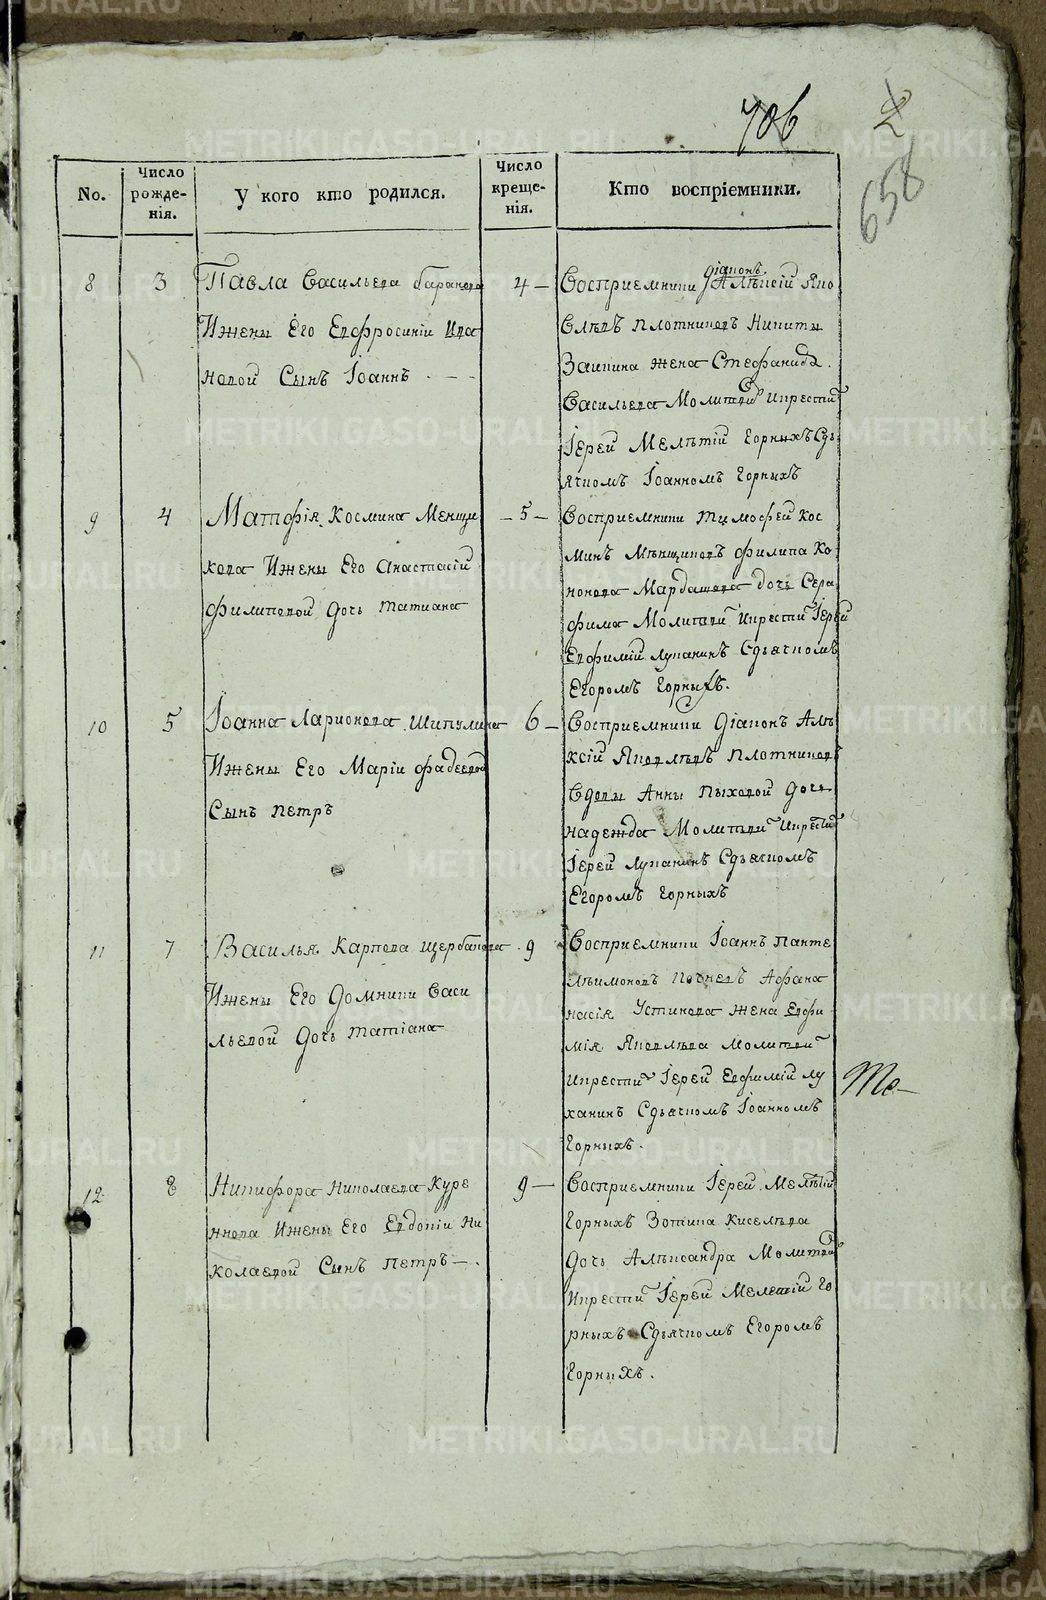 706
2
658
No.
Число рожде-нія.
У кого кто родился.
Число креще-нія.
Кто воспріемники.
8
3
Павла Васильева баранова
Ижены Его Евфросиніи Ива
новой Сынъ Іоаннъ
4
діаконъ
Восприемники Алѣксій Яко
влѣвъ плотниковъ Никиты
Заикина жена Стефанида
Васильева Молитвои икрестил
Іерей Мелѣтій Горныхъ Сдь
ячкомъ Іоанномъ Горныхъ
9
4
Матофія Космина Менщи
кова Ижены Его Анастасіи
филиповой дочь татиана
5
Восприемники Тимофей Кос
минъ Мѣнщиковъ филипа Ко
нонова Мардашова дочь Сера
фима Молитвои икрести Іерей
Евфимій Луканинъ Сдьячкомъ
Егоромъ Горныхъ.
10
5
Іоанна Ларионова Шипулина
Ижены Его Маріи фадеевой
Сынъ петръ
6
Восприемники діаконъ Алѣ
ксій Яковлѣвъ плотниковъ
вдовы Анны пыховой дочь
надежда Молитвои икрестил
Іерей Луканинъ Сдьячкомъ
Егоромъ Горныхъ
11
7
Василья Карпова щербакова
Ижены Его домники Васи
льевой дочь татіана
9
Восприемники Іоаннъ панте
лѣимоновъ Афана
насія Устинова жена Евфи
мія Яковлѣва Молитвои
икрести Іерей Евфимій лу
канинъ Сдьячкомъ Іоанномъ
Горныхъ.
12
8
Никифора николаева Куре
ннова Ижены Его Евдокіи ни
колаевой Сынъ петръ
9
Восприемники Іерей Мелѣтій
Горныхъ Зотика Киселѣва
дочь Алѣксандра Молитвои
икрести Іерей Мелетій Го
рныхъ Сдьячкомъ Егоромъ
Горныхъ.
METRIKI.GASO-URAL.RU